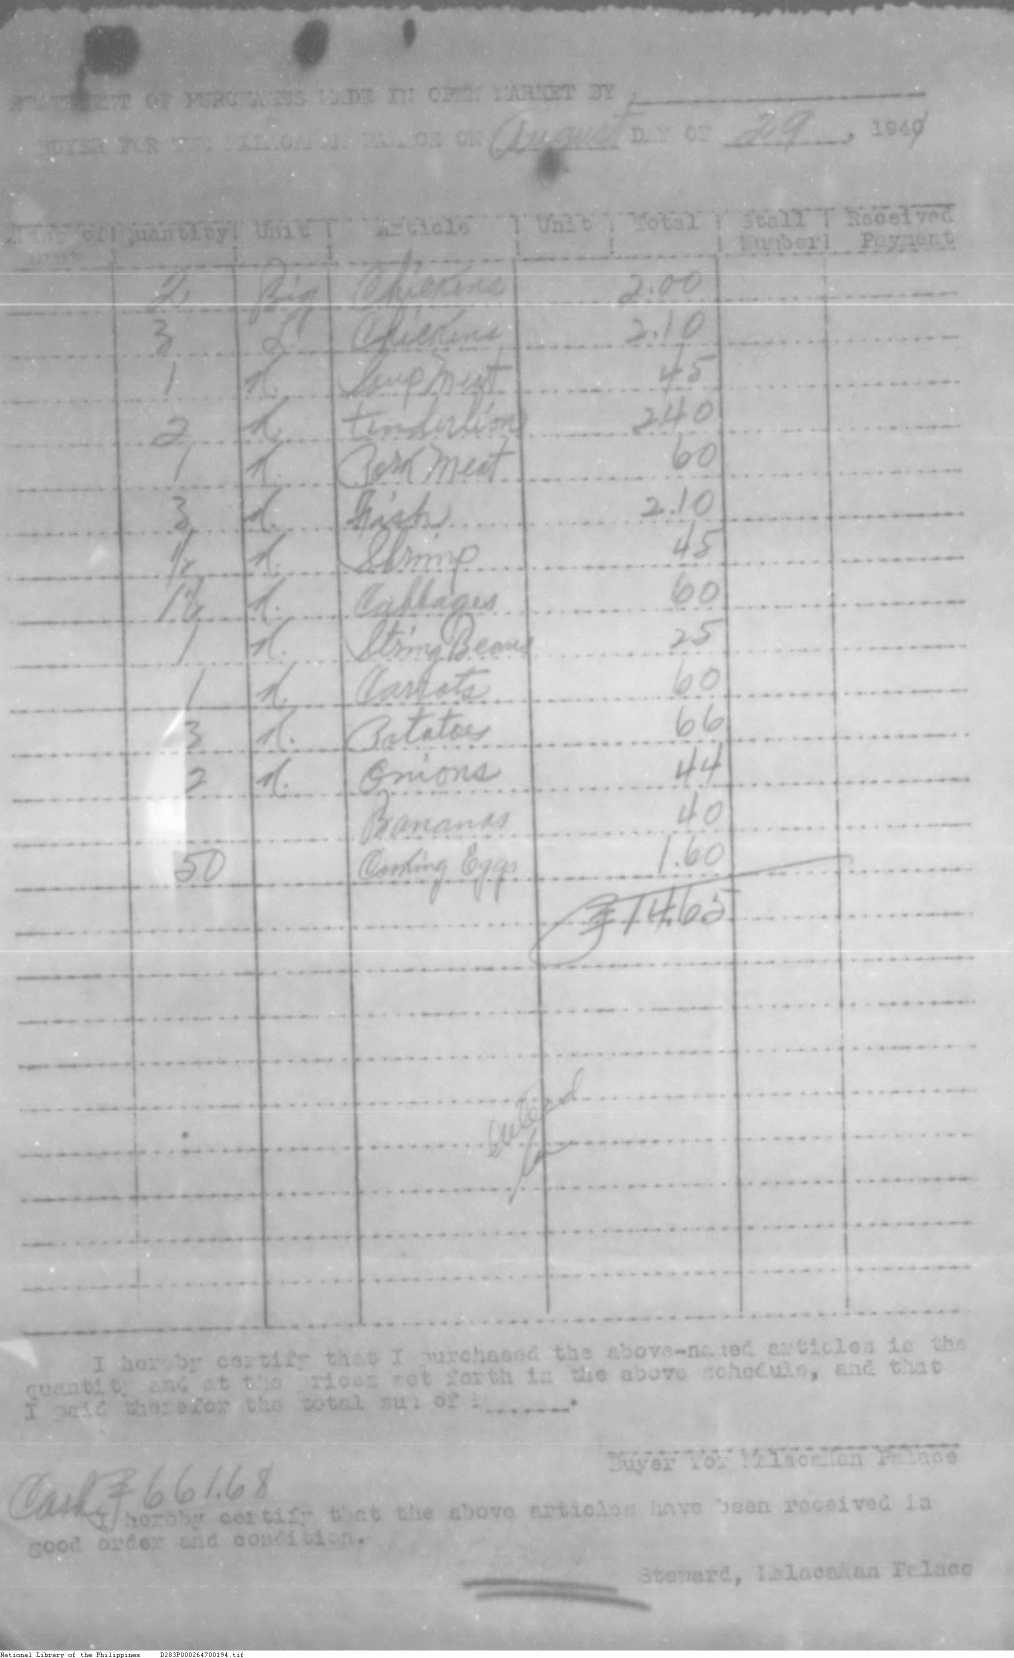 STATEMENT OF PURCHASES MADE IN OPEN MARKET BY
BUYER FOR THE MALACAÑAN PALACE ON August DAY OF 29, 1940
Quantity Unit Article Unit Total Stall Number Received Payment
2 Big Chickins 2.00
3 L Chickins 2.10
1 K. Soup Meat 45
2 K. tenderlion 240
1 K. Pork Meat 60
3 K. Fish 2.10
1/2 K. Shrimp 45
1 1/2 K. Cabbages 60
1 K. String Beans 25
1 K. Carrots 60
3 K. Potatoes 66
2 K. Onions 44
Bananas 40
50 Cooking Eggs 1.60
₱14.65
I hereby certify that I purchased the above-named articles in the
quantity and at the prices set forth in the above schedule, and that
I paid therefor the total sum of
Buyer for Malacañan Palace
Cash ₱661.68
I hereby certify that the above articles have been received in
good order and condition.
Steward, Malacañan Palace
National Library of the Philippines D283P000264700194.tif